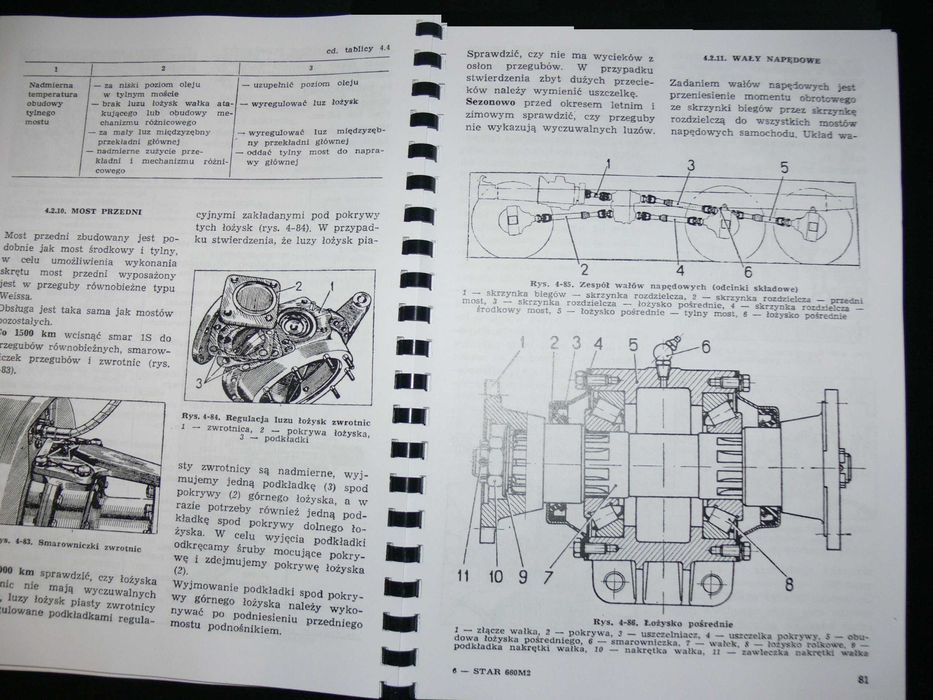 cd. tablicy 4.4
1 2 3
Nadmierna
temperatura
obudowy
tylnego
mostu
— za niski poziom oleju
w tylnym moście
— brak luzu łożysk wałka ata-
kującego lub obudowy me-
chanizmu różnicowego
— za mały luz międzyzębny
przekładni głównej
— nadmierne zużycie prze-
kładni i mechanizmu różni-
cowego
— uzupełnić poziom oleju
— wyregulować luz łożysk
— wyregulować luz międzyzęb-
ny przekładni głównej
— oddać tylny most do napra-
wy głównej
4.2.10. MOST PRZEDNI
Most przedni zbudowany jest po-
dobnie jak most środkowy i tylny,
w celu umożliwienia wykonania
skrętu most przedni wyposażony
jest w przeguby równobieżne typu
Weissa.
Obsługa jest taka sama jak mostów
pozostałych.
Co 1500 km wcisnąć smar 1S do
rzegubów równobieżnych, smarow-
iczek przegubów i zwrotnic (rys.
-83).
ys. 4-83. Smarowniczki zwrotnic
000 km sprawdzić, czy łożyska
nic nie mają wyczuwalnych
, luzy łożysk piasty zwrotnicy
gulowane podkładkami regula-
cyjnymi zakładanymi pod pokrywy
tych łożysk (rys. 4-84). W przypad-
ku stwierdzenia, że luzy łożysk pia-
1
2
3
Rys. 4-84. Regulacja luzu łożysk zwrotnic
1 — zwrotnica, 2 — pokrywa łożyska,
3 — podkładki
sty zwrotnicy są nadmierne, wyj-
mujemy jedną podkładkę (3) spod
pokrywy (2) górnego łożyska, a w
razie potrzeby również jedną pod-
kładkę spod pokrywy dolnego ło-
żyska. W celu wyjęcia podkładki
odkręcamy śruby mocujące pokry-
wę i zdejmujemy pokrywę łożyska
(2).
Wyjmowanie podkładki spod pokry-
wy górnego łożyska należy wyko-
nywać po podniesieniu przedniego
mostu podnośnikiem.
Sprawdzić, czy nie ma wycieków z
osłon przegubów. W przypadku
stwierdzenia zbyt dużych przecie-
ków należy wymienić uszczelkę.
Sezonowo przed okresem letnim i
zimowym sprawdzić, czy przeguby
nie wykazują wyczuwalnych luzów.
4.2.11. WAŁY NAPĘDOWE
Zadaniem wałów napędowych jest
przeniesienie momentu obrotowego
ze skrzynki biegów przez skrzynkę
rozdzielczą do wszystkich mostów
napędowych samochodu. Układ wa-
1 3 5
2 4 6
Rys. 4-85. Zespół wałów napędowych (odcinki składowe)
1 — skrzynka biegów — skrzynka rozdzielcza, 2 — skrzynka rozdzielcza — przedni
most, 3 — skrzynka rozdzielcza — łożysko pośrednie, 4 — skrzynka rozdzielcza —
środkowy most, 5 — łożysko pośrednie — tylny most, 6 — łożysko pośrednie
1 2 3 4 5 6
11 10 9 7 8
Rys. 4-86. Łożysko pośrednie
1 — złącze wałka, 2 — pokrywa, 3 — uszczelniacz, 4 — uszczelka pokrywy, 5 — obu-
dowa łożyska pośredniego, 6 — smarowniczka, 7 — wałek, 8 — łożysko rolkowe, 9 —
podkładka nakrętki wałka, 10 — nakrętka wałka, 11 — zawleczka nakrętki wałka
6 — STAR 660M2
81